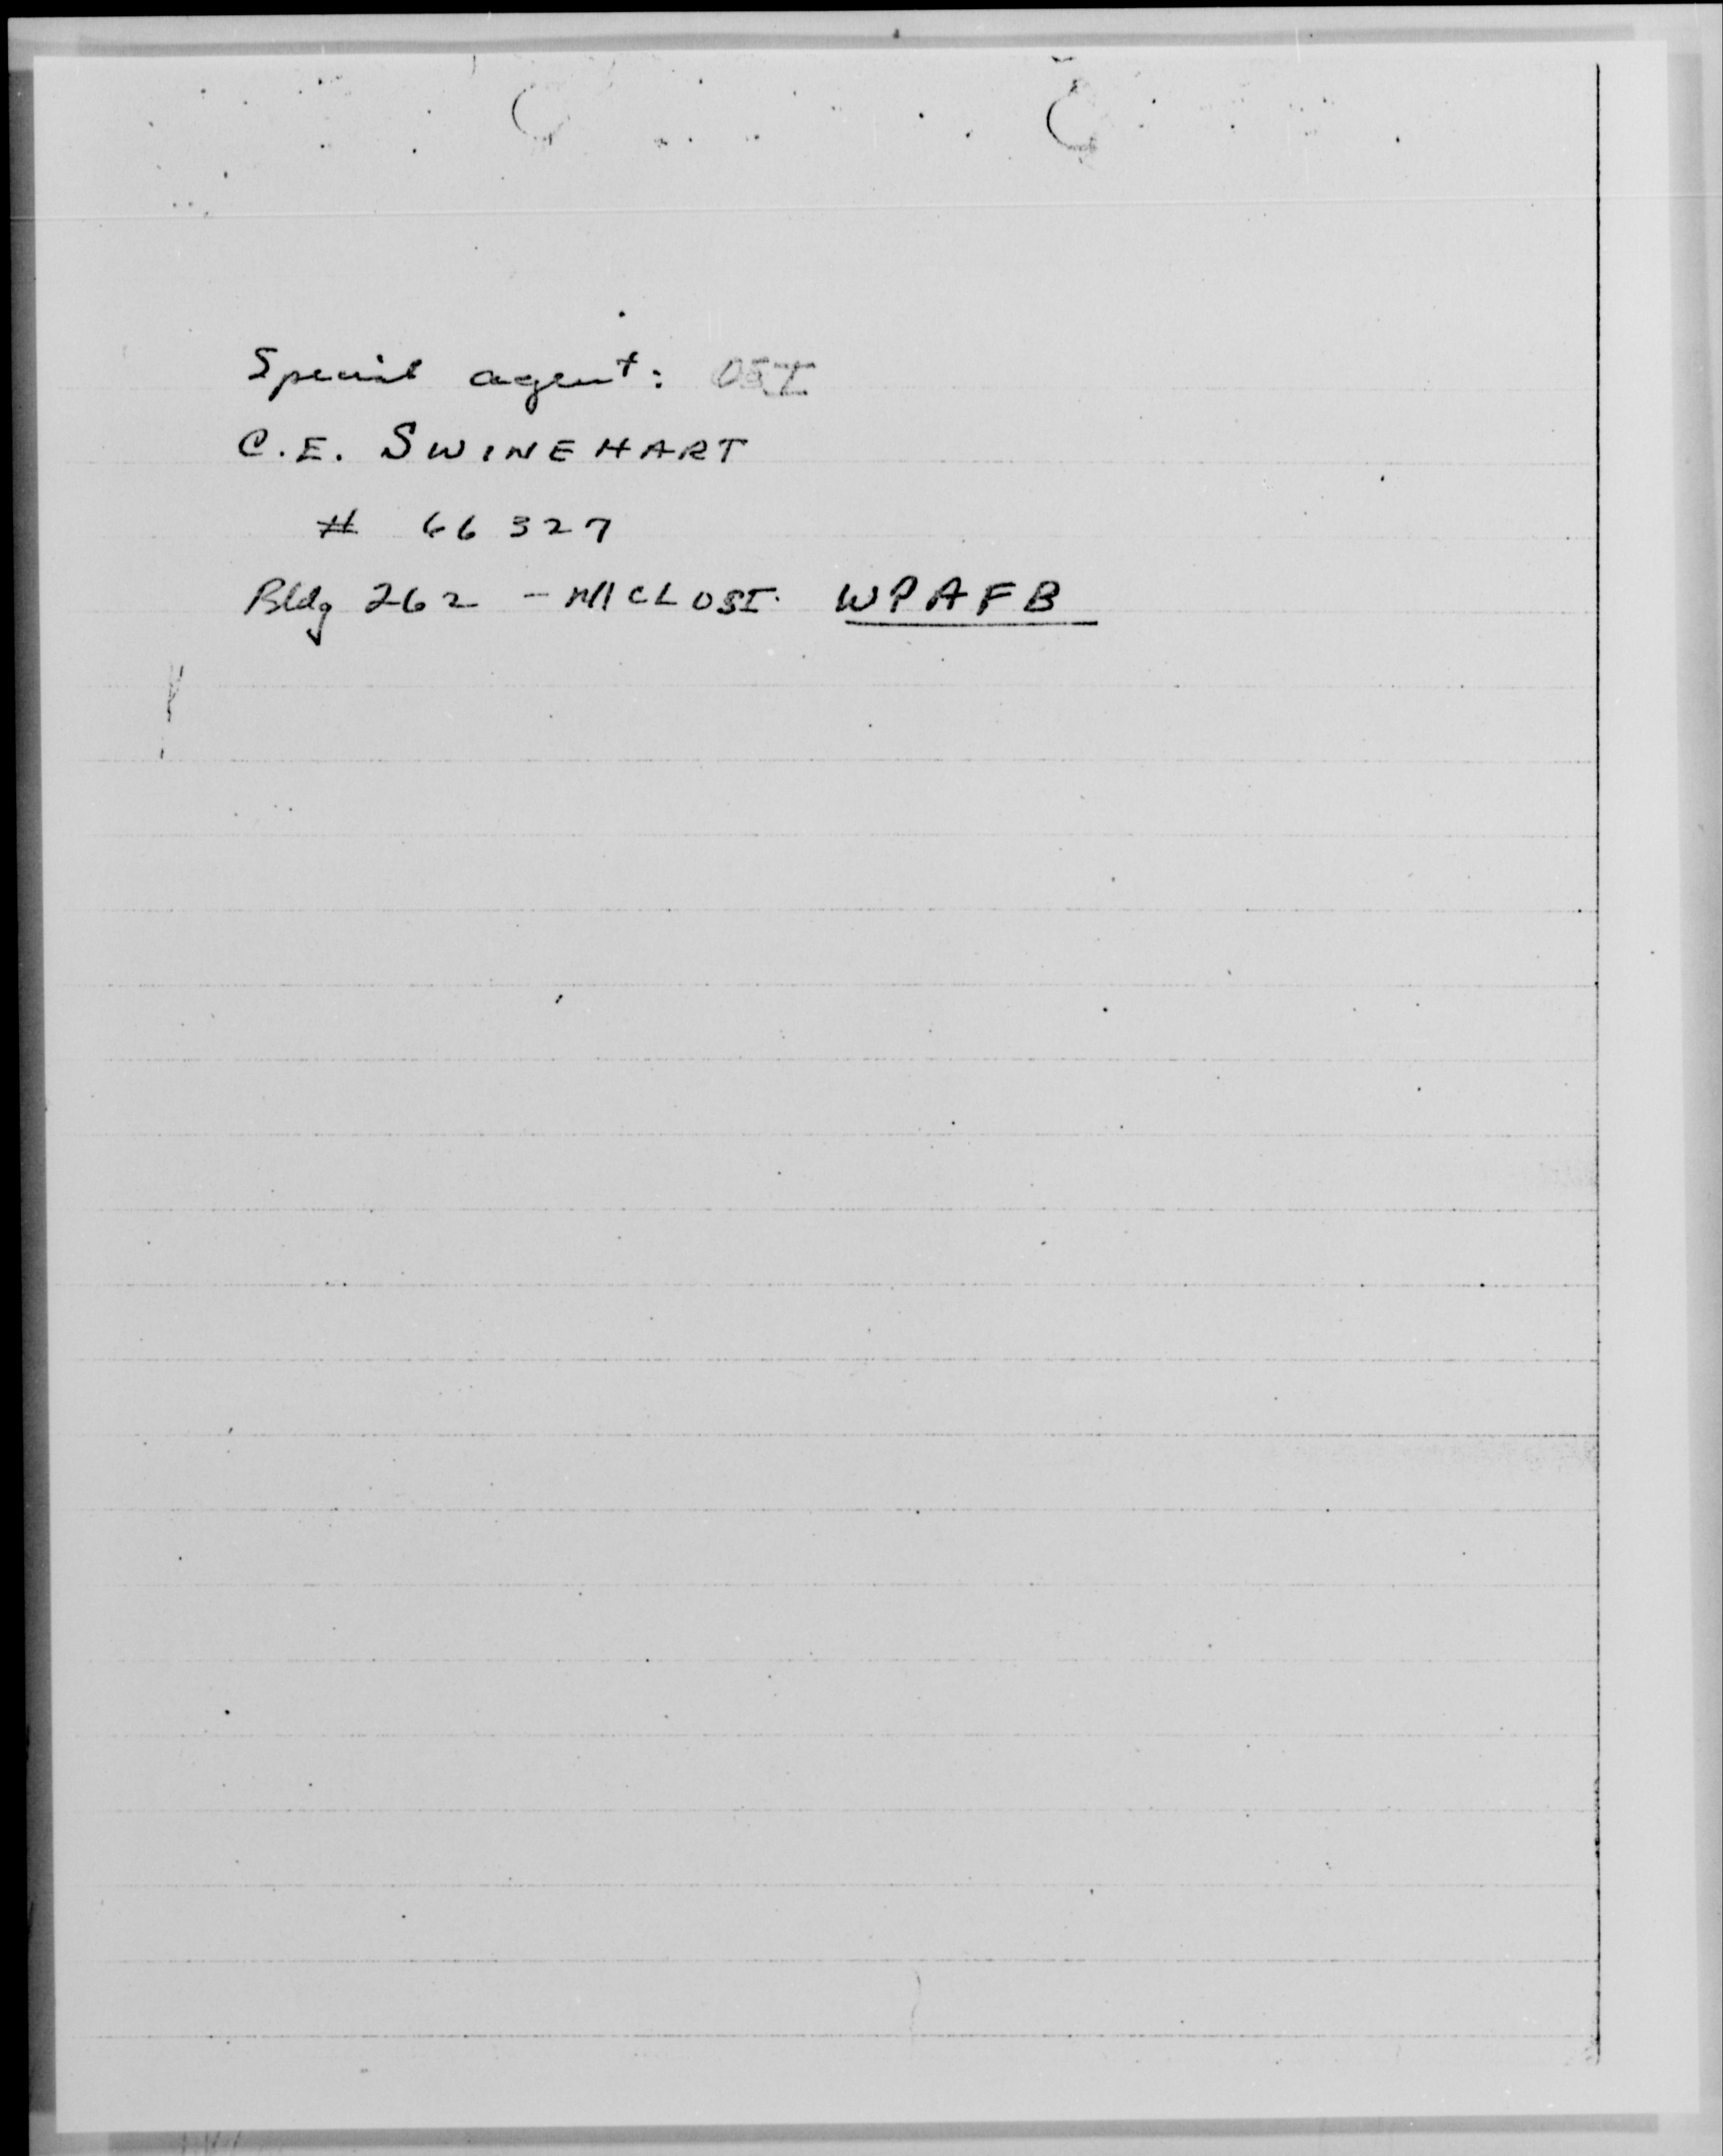 Special agent: OSI
C.E. SWINEHART
# 66327
Bldg 262 - MCLOSI. WPAFB